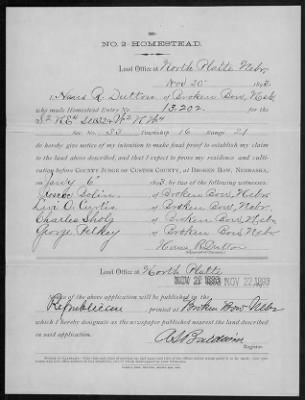 NO. 2-HOMESTEAD.
Land Office at North Platte Nebr.
Nov 20 189
I, R. Dutton of Broken Bow, Neb
who made Homestead Entry No. 13,202.
Sec. No. 33 Township 16 Range 21
do hereby give notice of my intention to make final proof to establish my claim
to the land above described, and that I expect to prove my residence and cultivation
before COUNTY JUDGE OF CUSTER COUNTY, AT BROKEN BOW, NEBRASKA,
on Jan'y 6 by two of the following witnesses:
of Broken Bow, Nebr
Levi O. Curtis of Broken Bow, Nebr.
Charles of Broken Bow, Nebr
George Pelkey of Broken Bow, Nebr
R Dutton
Land Office at North Platte
NOV 22 1893
Notice of the above application will be published in the
Republican printed at Broken Bow Nebr
which I hereby designate as the newspaper published nearest the land described
in said application.
Baldwin
Register.